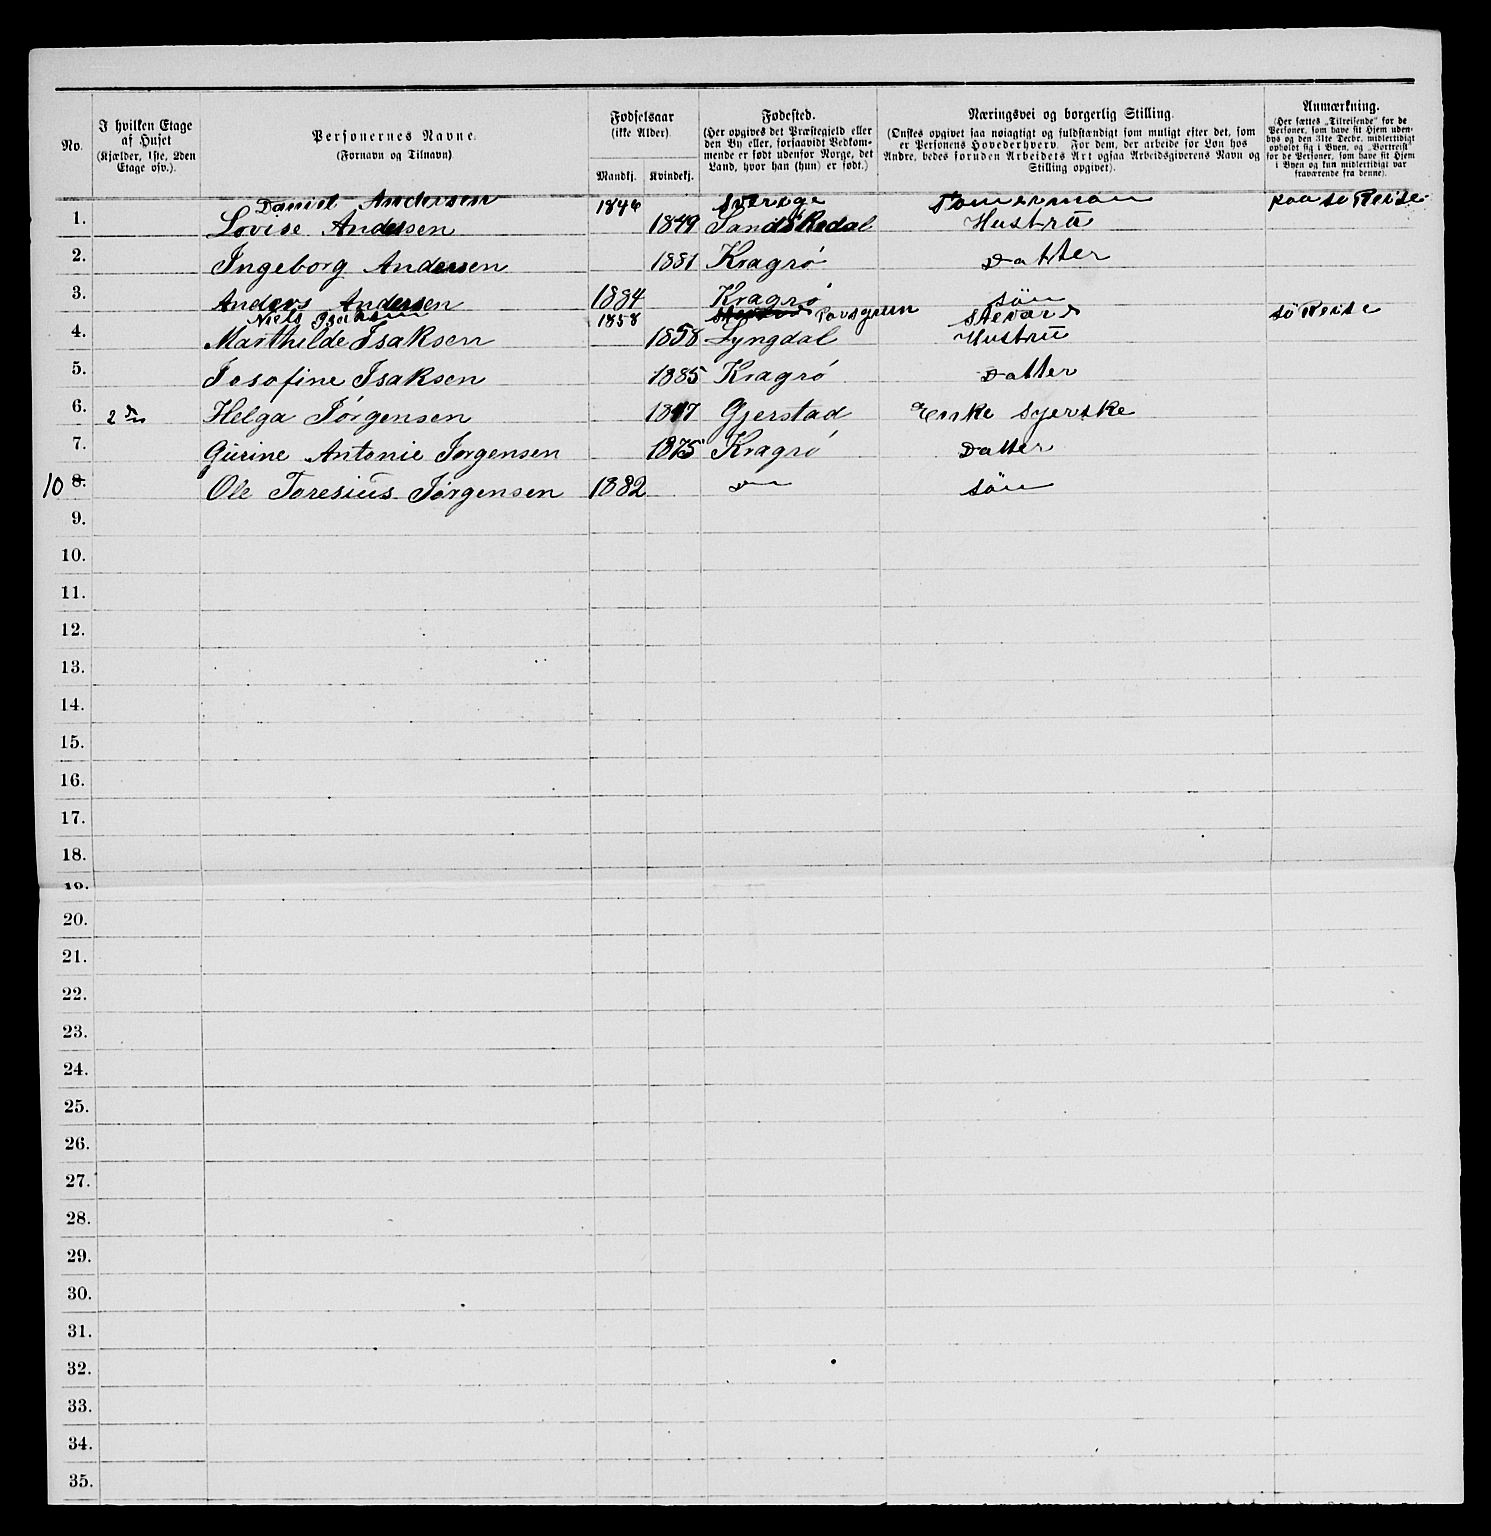 No.
I hvilken Etage af Huset (Kjælder, 1ste, 2den Etage osv.).
Personernes Navne. (Fornavn og Tilnavn)
Fødselsaar (ikke Alder)
Mandkj. Kvindekj.
Fødested. (Her opgives det Præstegjeld eller den By eller, forsaavidt Vedkommende er født udenfor Norge, det Land, hvor han (hun) er født.)
Næringsvei og borgerlig Stilling. (Ønskes opgivet saa nøiagtigt og fuldstændigt som muligt efter det, som er Personens Hovederhverv. For dem, der arbeide for Løn hos Andre, bedes foruden Arbeidets Art ogsaa Arbeidsgiverens Navn og Stilling opgivet).
Anmærkning. (Her sættes „Tilreisende" for de Personer, som have sit Hjem udenbys og den 31te Decbr. midlertidigt opholdt sig i Byen, og „Bortreist" for de Personer, som have sit Hjem i Byen og kun midlertidigt var fraværende fra denne).
Daniel Andersen 1846 Sverige Tømerman paa sø Reise
1. Lovise Andersen 1849 Sandøkedal Hustru
2. Ingeborg Andersen 1881 Kragrø Datter
3. Anders Andersen 1884 Kragrø søn
Niels Isaksen 1858 Porsgrun Stevard sø Reise
4. Marthilde Isaksen 1858 Lyngdal Hustru
5. Josefine Isaksen 1885 Kragrø Datter
6. 2den Helga Jørgensen 1847 Gjerstad Enke Syerske
7. Gurine Antonie Jørgensen 1875 Kragrø Datter
10 8. Ole Toresius Jørgensen 1882 do søn
9.
10.
11.
12.
13.
14.
15.
16.
17.
18.
19.
20.
21.
22.
23.
24.
25.
26.
27.
28.
29.
30.
31.
32.
33.
34.
35.